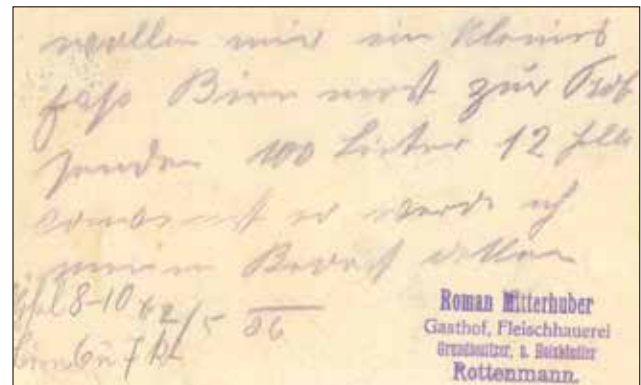 wollen mir ein kleines
fass Birnmost zur Prob
senden 100 Lieter 12
er werde ich
meinen Bedarf
8-10
6 u 7
Roman Mitterhuber
Gasthof, Fleischhauerei
Grundbesitzer, u. Holzhändler
Rottenmann.